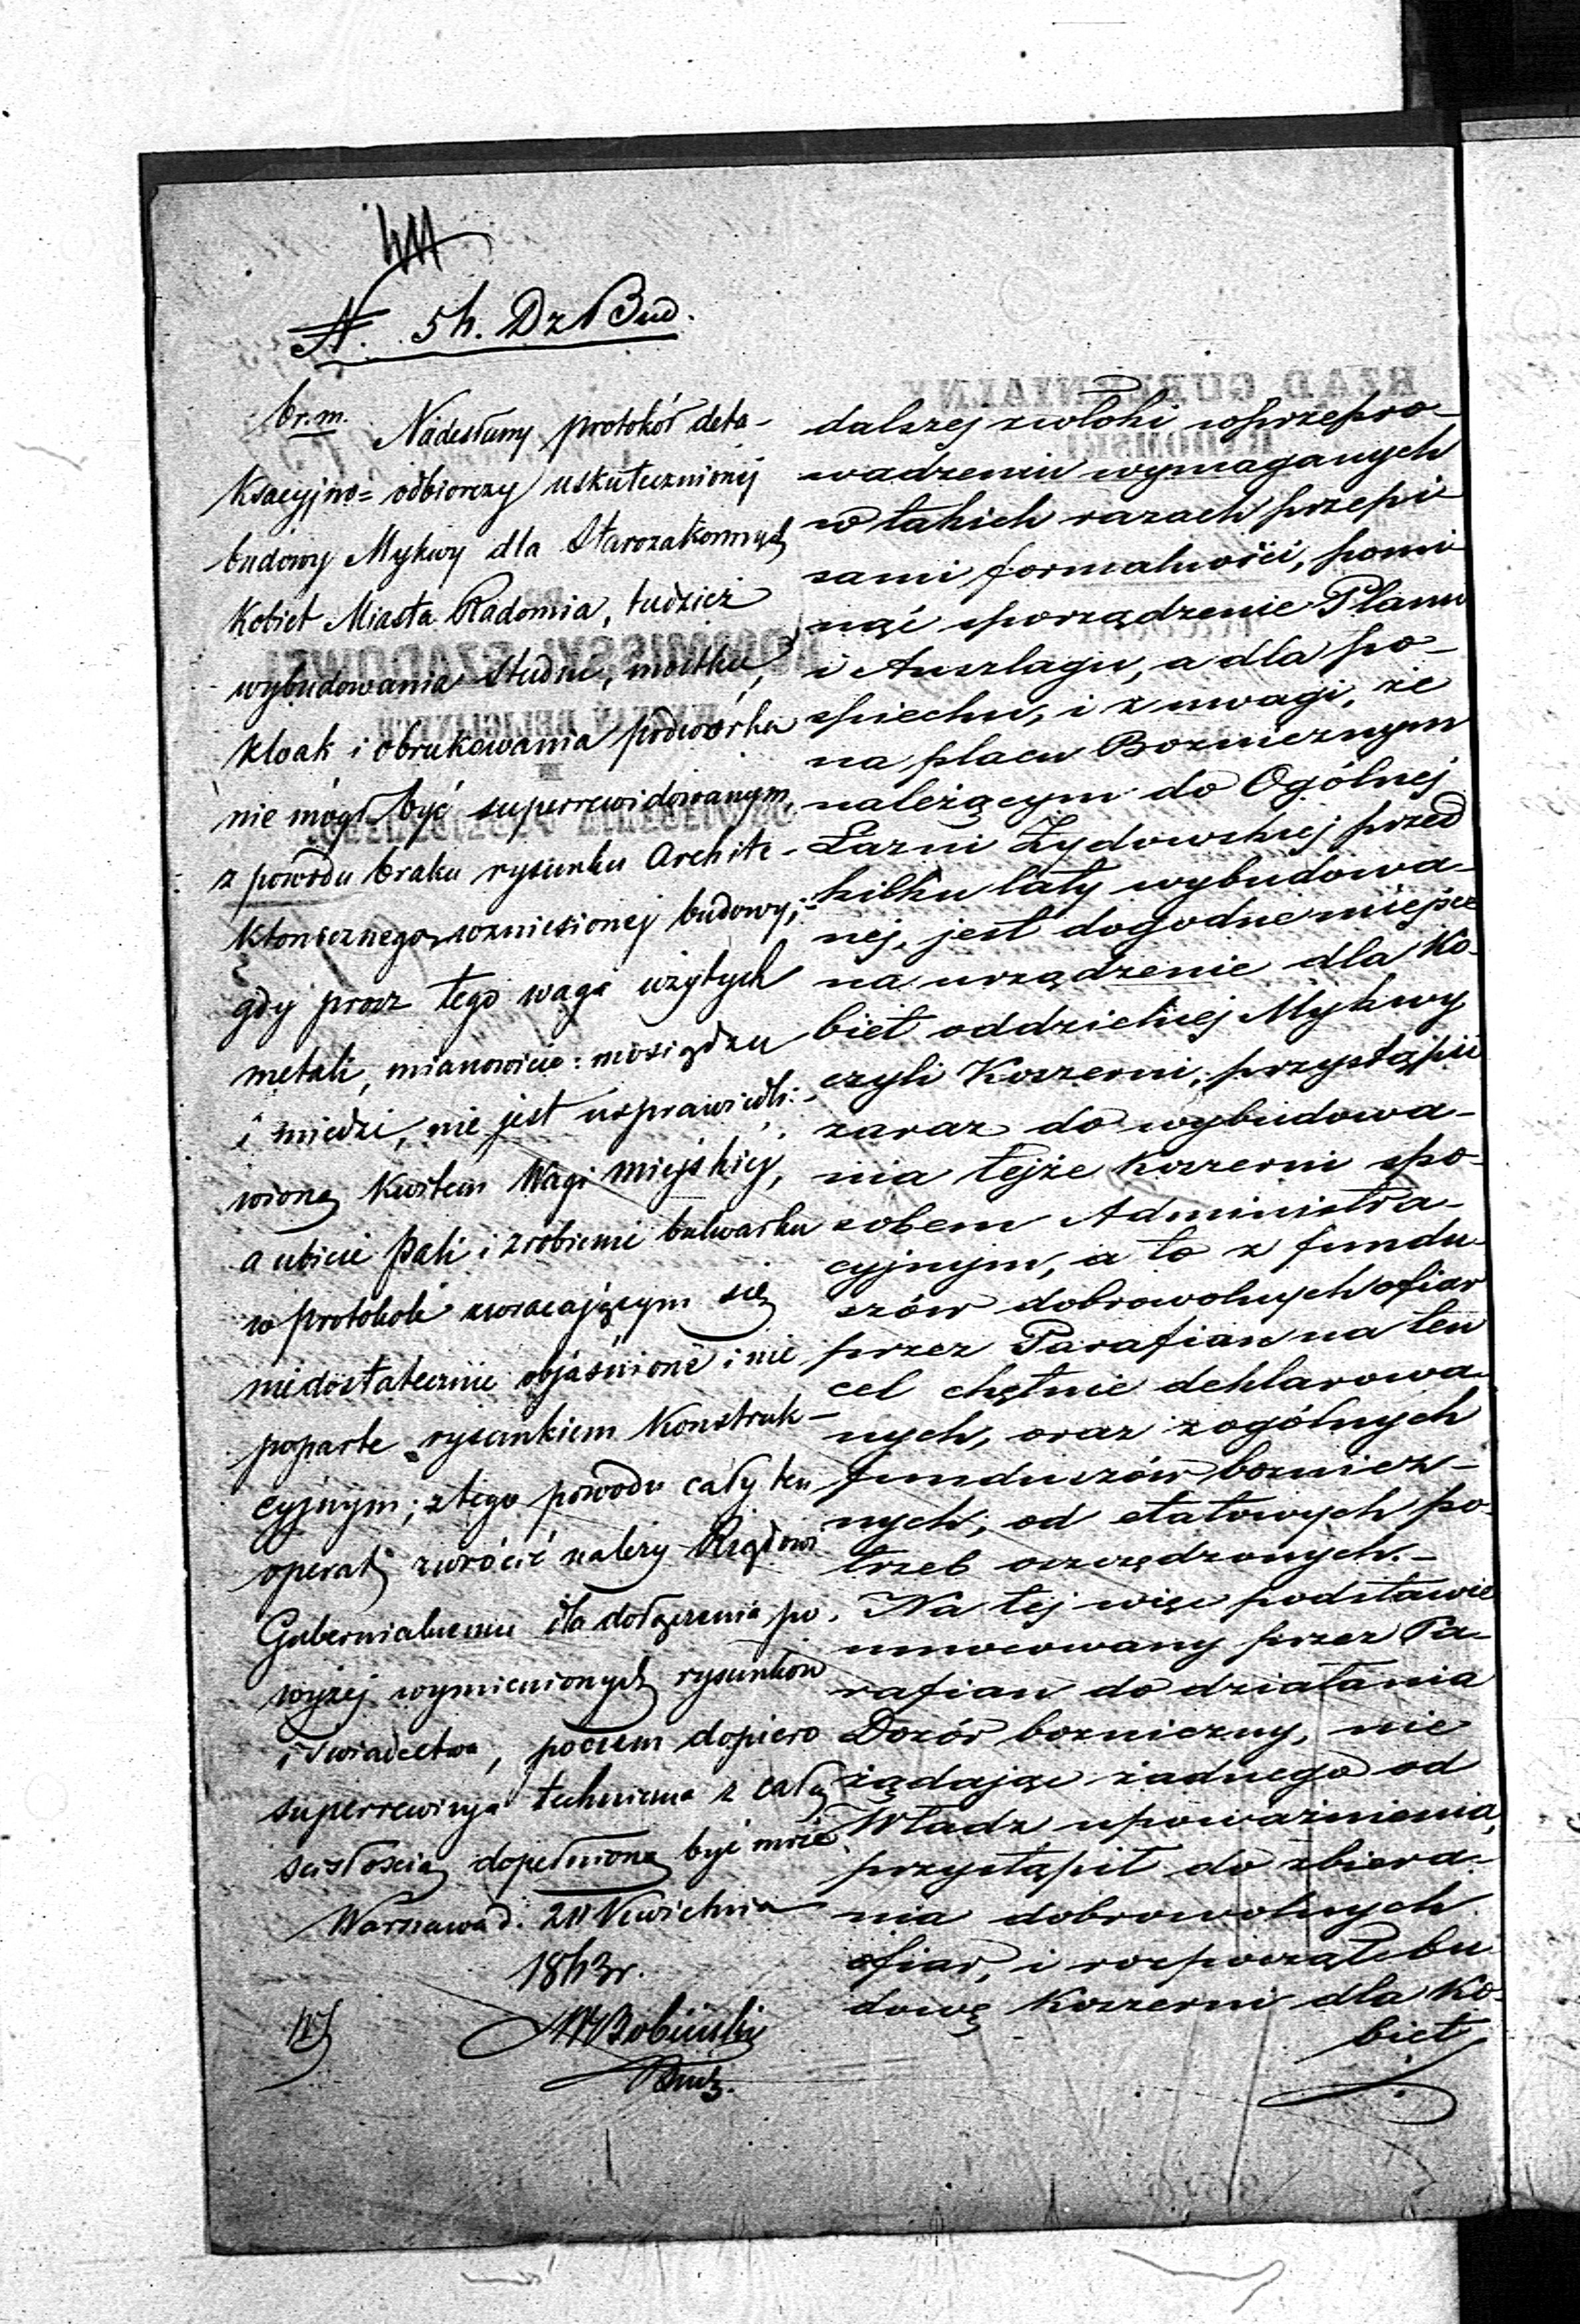 N. 54. Dz Bud.
br. m. Nadesłany protokół deta-
ksacyjno= odbiorczy uskutecznionej
budowy Mykwy dla Starozakonnych
Kobiet Miasta Radomia, tudzież
wybudowania studni, mostku,
kloak i obrukowania podwórka
nie mógł być superrewidowanym,
z powodu braku rysunku Archite-
ktonicznego wzniesionej budowy;
gdy prócz tego waga użytych
metali, mianowicie: mosiądzu
i miedzi, nie jest usprawiedli-
wioną Kwitem Wagi miejskiej,
a ubicie pali i zrobienie bulwarku
w protokole zwracającym się
niedostatecznie objaśnione i nie
poparte rysunkiem Konstruk-
cyjnym; z tego powodu cały ten
operat zwrócić należy Rządowi
Gubernialnemu dla dołączenia po-
wyżej wymienionych rysunków
i świadectwa, poczem dopiero
superrewizya techniczna z całą
ścisłością dopełnioną być może
Warszawa d. Kwietnia
1843 r.
Bobiński
Budz.
dalszej zwłoki w przepro-
wadzeniu wymaganych
w takich razach przepi-
sami formalności, pomi-
nąć sporządzenie Planu
i Anszlagu, a dla po-
spiechu, i z uwagi, że
na placu Boznicznym
należącym do Ogólnej
Łazni Żydowskiej przed
kilku laty wybudowa-
nej, jest dogodne miejsce
na urządzenie dla Ko-
biet oddzielnej Mykwy
czyli Koszerni, przystąpić
zaraz do wybudowa-
nia tejże Koszerni spo-
sobem Administra-
cyjnym, a to z fundu-
szów dobrowolnych ofiar
przez Parafian na ten
cel chętnie deklarowa-
nych, oraz z ogólnych
funduszów boznicz-
nych, od etatowych po-
trzeb oszczędzonych.-
Na tej więc podstawie
umocowany przez Pa-
rafian do działania
Dozór bozniczny, nie
żądając żadnego od
Władz upoważnienia,
przystąpił do zbiera-
nia dobrowolnych
ofiar, i rozpoczął bu-
dowę Koszerni dla Ko-
biet